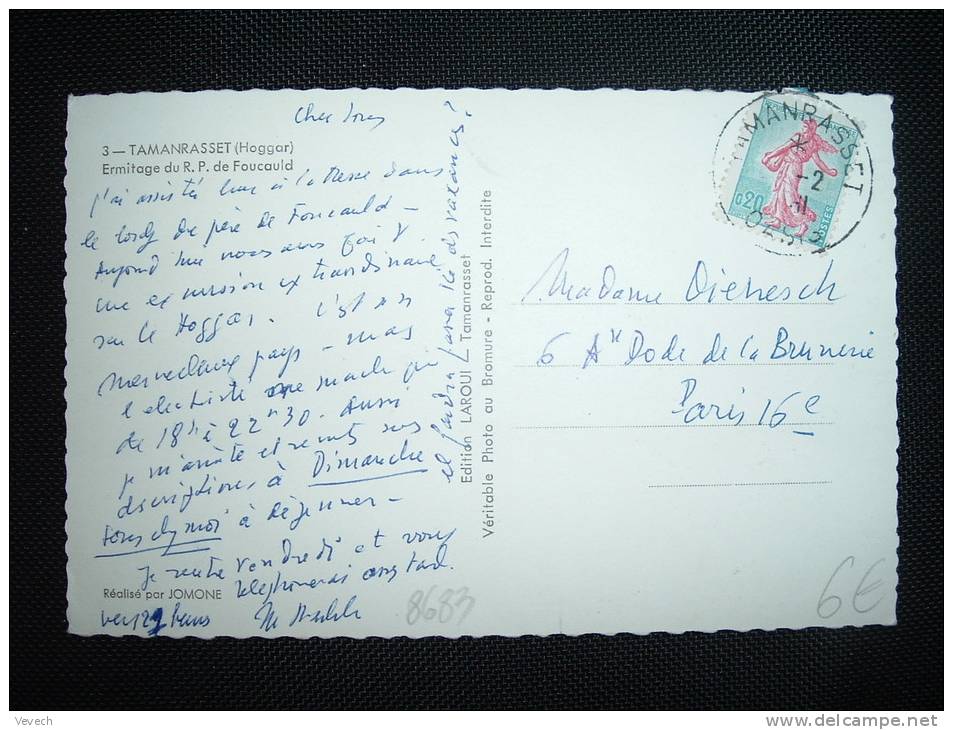 Cher
3 — TAMANRASSET (Hoggar)
Ermitage du R. P. de Foucauld
j'ai assisté hier à la Messe dans
le bordj du père de Foucauld —
Aujourd'hui nous avons fait
une excursion extraordinaire
sur le Hoggar. C'est un
merveilleux pays — mais
l'électricité ne marche que
de 18h à 22h30. Aussi
je m'arrête et remets mes
descriptions à Dimanche
tous chez moi à déjeuner —
Je rentre vendredi et vous
téléphonerai
Réalisé par JOMONE
vers
il faudra
des vacances!
Edition LAROUI Tamanrasset
Véritable Photo au Bromure - Reprod. Interdite
TAMANRASSET
-2
11
OASIS
0,20
POSTES
Madame Dienesch
6 Av Dode de la Brunerie
Paris 16e
8683
6€
Vevech
www.delcampe.net